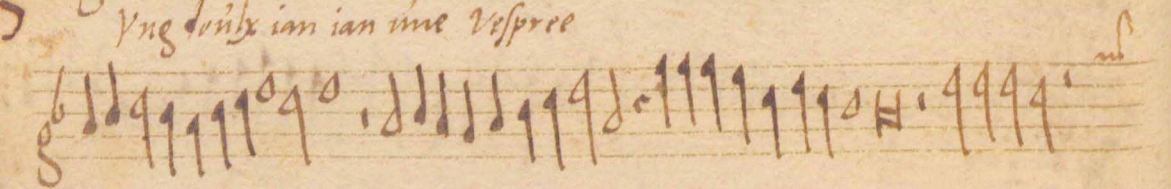 Vng doulx ian ian une Vespree